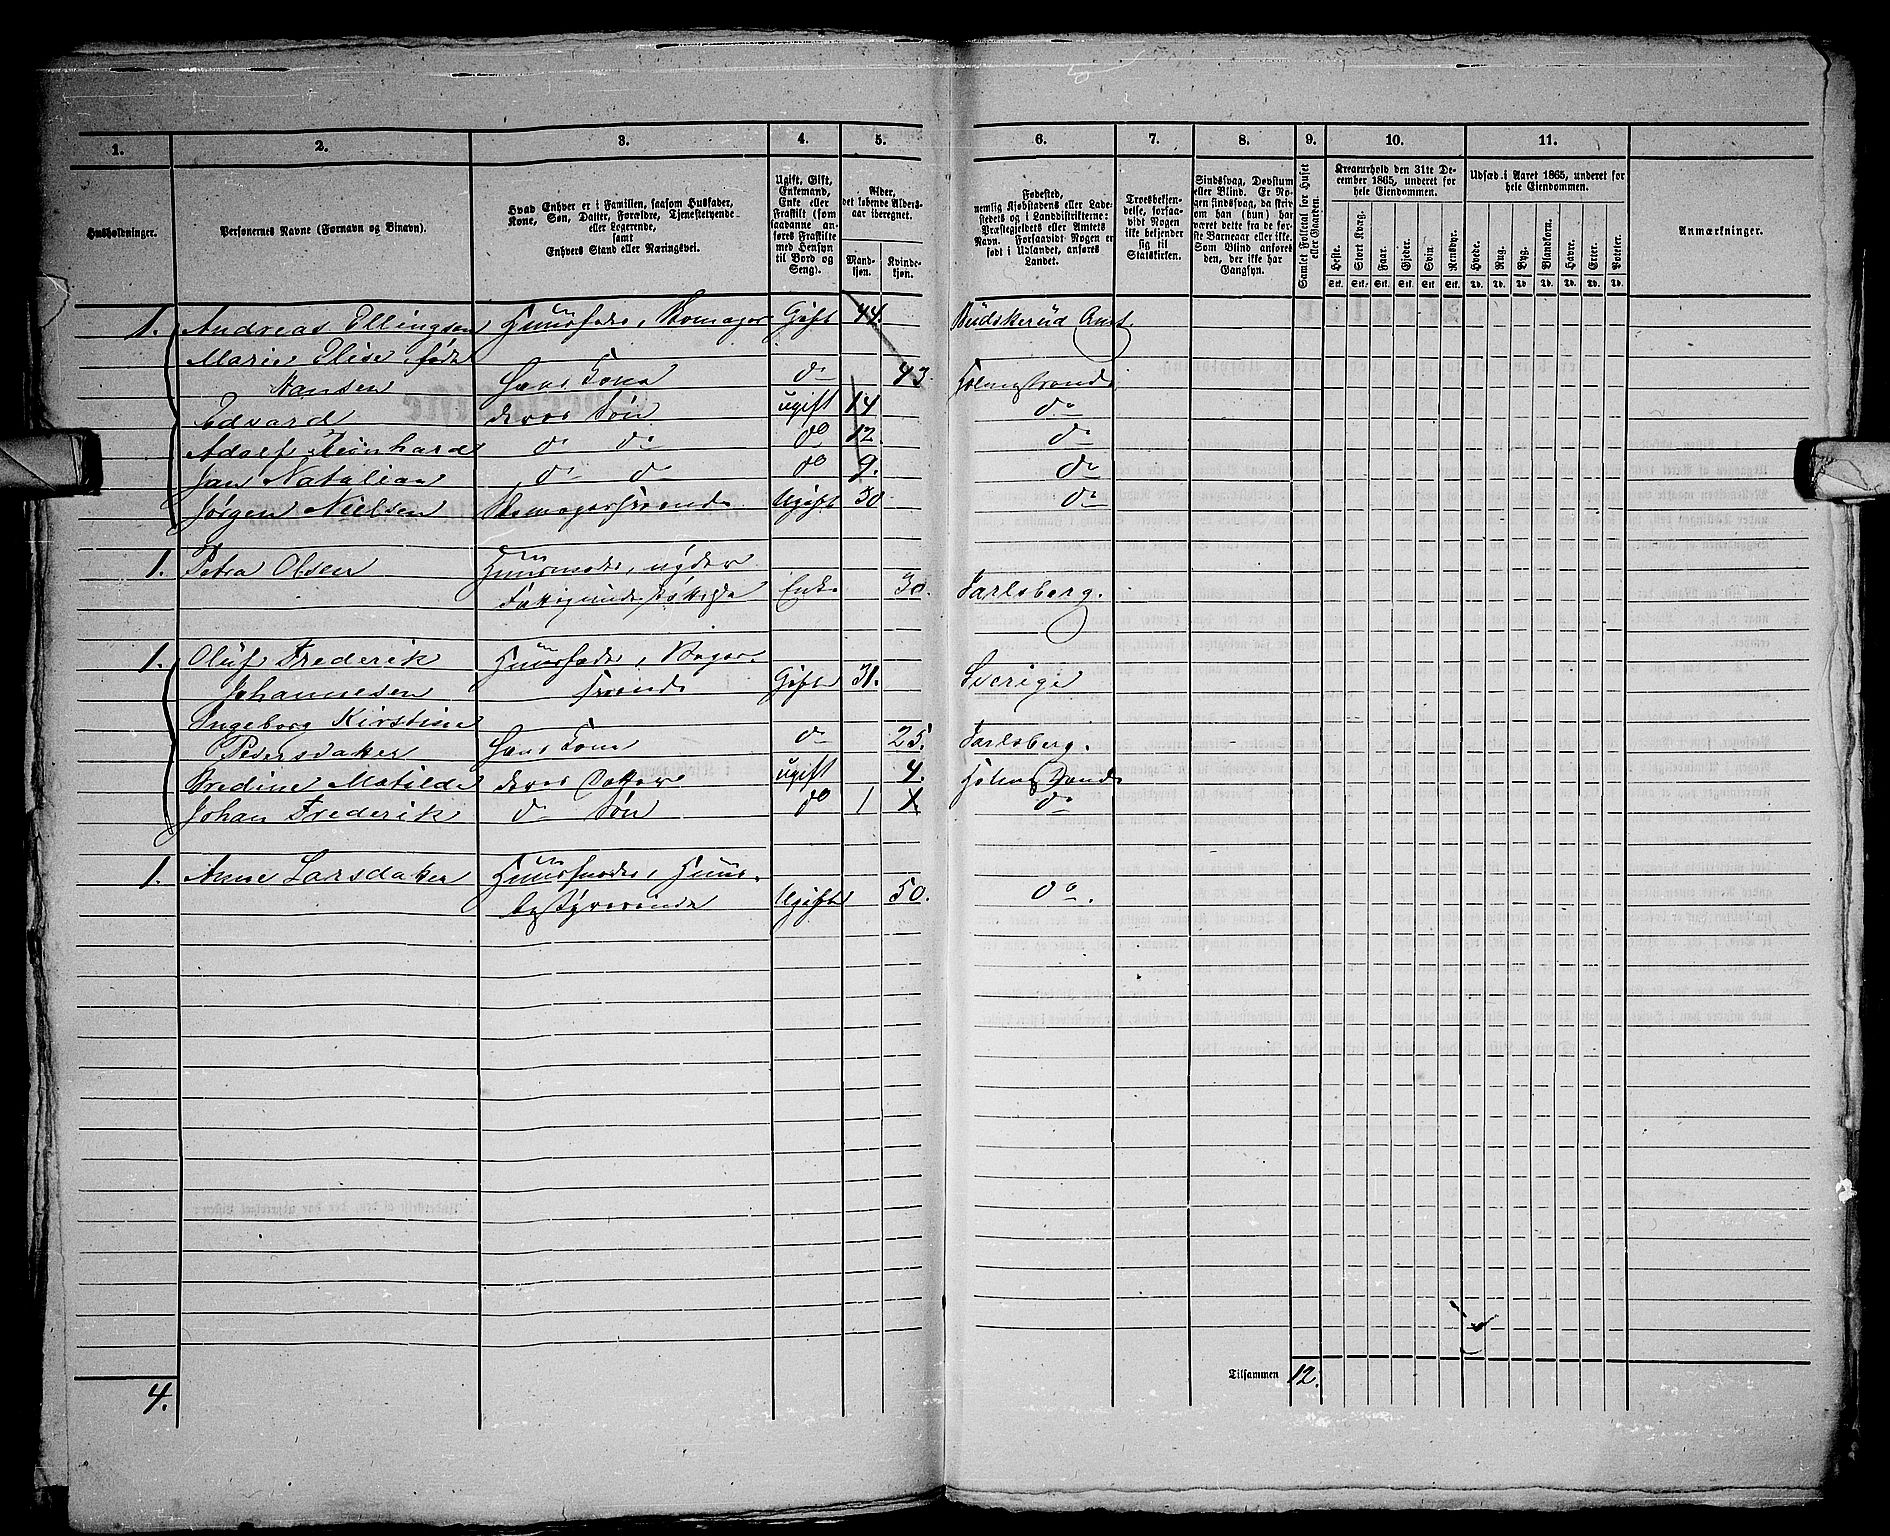 1. 2. 3. 4. 5. 6. 7. 8. 9. 10. 11.
Husholdninger.
Personernes Navne (Fornavn og Binavn).
Hvad Enhver er i Familien, saasom Husfader,
Kone, Søn, Datter, Forældre, Tjenestetyende
eller Logerende,
samt
Enhvers Stand eller Næringsvei.
Ugift, Gift,
Enkemand,
Enke eller
Fraskilt (som
saadanne an-
føres Fraskilte
med Hensyn
til Bord og
Seng).
Alder,
det løbende Alders-
aar iberegnet.
Mand-
kjøn.
Kvinde-
kjøn.
Fødested,
nemlig Kjøbstadens eller Lade-
stedets og i Landdistrikterne:
Præstegjeldets eller Amtets
Navn. Forsaavidt Nogen er
født i Udlandet, anføres
Landet.
Troesbekjen-
delse, forsaa-
vidt Nogen
ikke bekjender
sig til
Statskirken.
Sindssvag, Døvstum
eller Blind. Er No-
gen sindssvag, da skriv
om han (hun) har
været dette fra de før-
ste Barneaar eller ikke.
Som Blind anføres
den, der ikke har
Gangsyn.
Samlet Folketal for Huset
eller Gaarden.
Kreaturhold den 31te De-
cember 1865, underet for
hele Eiendommen.
Heste. Stort Kvæg. Faar. Gjeder. Svin. Rensdyr.
Stk. Stk. Stk. Stk. Stk. Stk.
Udsæd i Aaret 1865, underet for
hele Eiendommen.
Hvede. Rug. Byg. Blandkorn. Havre. Erter. Poteter.
Td. Td. Td. Td. Td. Td. Td.
Anmærkninger.
1. Andreas Ellingsen Huusfader, Skomager Gift 44. Büdskerüd Amt.
Marie Elise, født
Hansen Hans Kone do 43. Holmestrand
Edvard deres Søn ugift 14 do
Adolf Reinhard do do do 12. do
Jan Natalian do do do 9. do
Jørgen Nielsen Skomagersvend Ugift 30 do
1. Petra Olsen Huusmoder, nyder
Fattigunderstøttelse Enke 30. Jarlsberg.
1. Olüf Frederik Huusfader, Bager-
Johannesen svend Gift 31. Sverige
Ingeborg Kirstine
Pedersdatter Hans Kone do 25. Jarlsberg.
Bredine Matilde deres Datter ugift 4. Holmestrand
Johan Frederik do Søn do 1 1 do
1. Anne Larsdatter Huusmoder, Huus-
bestyrerinde Ugift 50. do.
Tilsammen 12.
4.